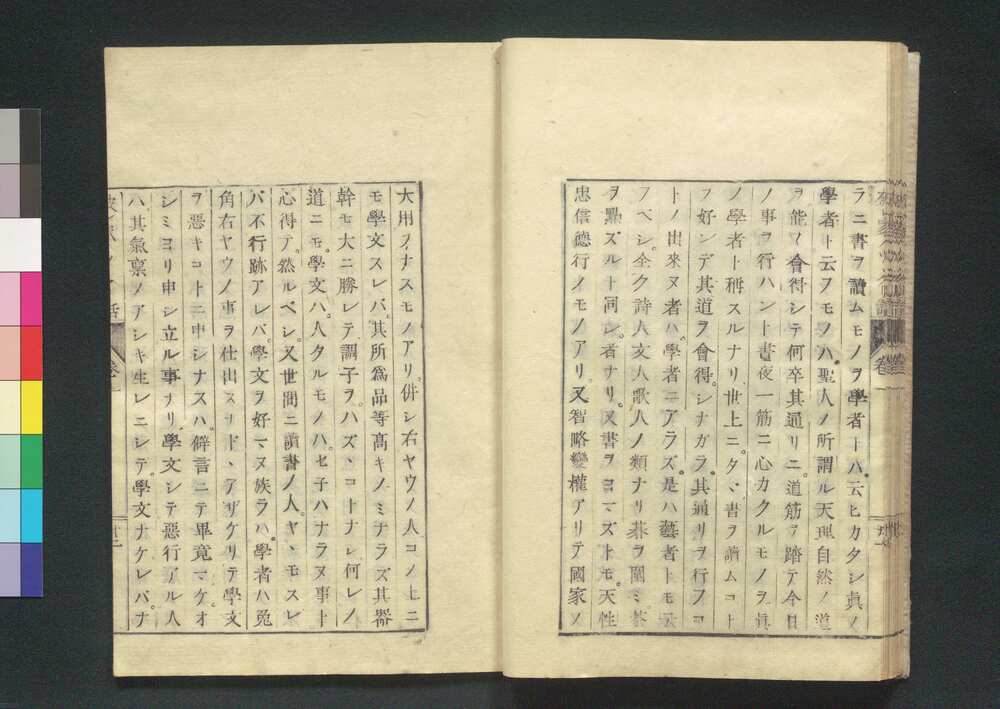 ラニ書ヲ讀ムモノヲ學者トハ。云ヒカタシ眞ノ
學者ト云フモノハ聖人ノ所謂ル天理自然ノ道
ヲ能ク會得シテ何卒其通リニ。道筋ヲ踏テ今日
ノ事ヲ行ハント書夜一筋ニ心カクルモノヲ眞
ノ學者ト稱スルナリ。世上ニ。タヾ書ヲ讀ムコト
ヲ好ンデ其道ヲ會得。シナガラ。其通リヲ行フコ
トノ出來ヌ者ハ。學者ニアラズ。是ハ藝者トモ云
フベシ。全ク詩人文人歌人ノ類ナリ碁ヲ圍ミ茶
ヲ點ズルト同シ。者ナリ。又書ヲヨマズトモ。天性
忠信德行ノモノアリ。又智略變權アリテ國家ノ
大用ヲナスモノアリ。併シ右ヤウノ人コノ上ニ
モ學文スレバ。其所爲品等高キノミナラズ其器
幹モ大ニ勝レテ調子ヲハズヽコトナシ何レノ
道ニモ。學文ハ。人タルモノハ。セ子ハナラヌ事ト
心得テ。然ルベシ。又世間ニ讀書ノ人。ヤヽモスレ
バ不行跡アレバ。學文ヲ好マヌ族ラハ。學者ハ兎
角右ヤウノ事ヲ仕出スヲトヽアザケリテ學文
ヲ惡キコトニ申シナスハ。僻言ニテ畢竟マケ。オ
シミヨリ申シ立ル事ナリ。學文シテ惡行アル人
ハ其氣稟ノアシキ生レニシテ。學文ナケレバ。ナ